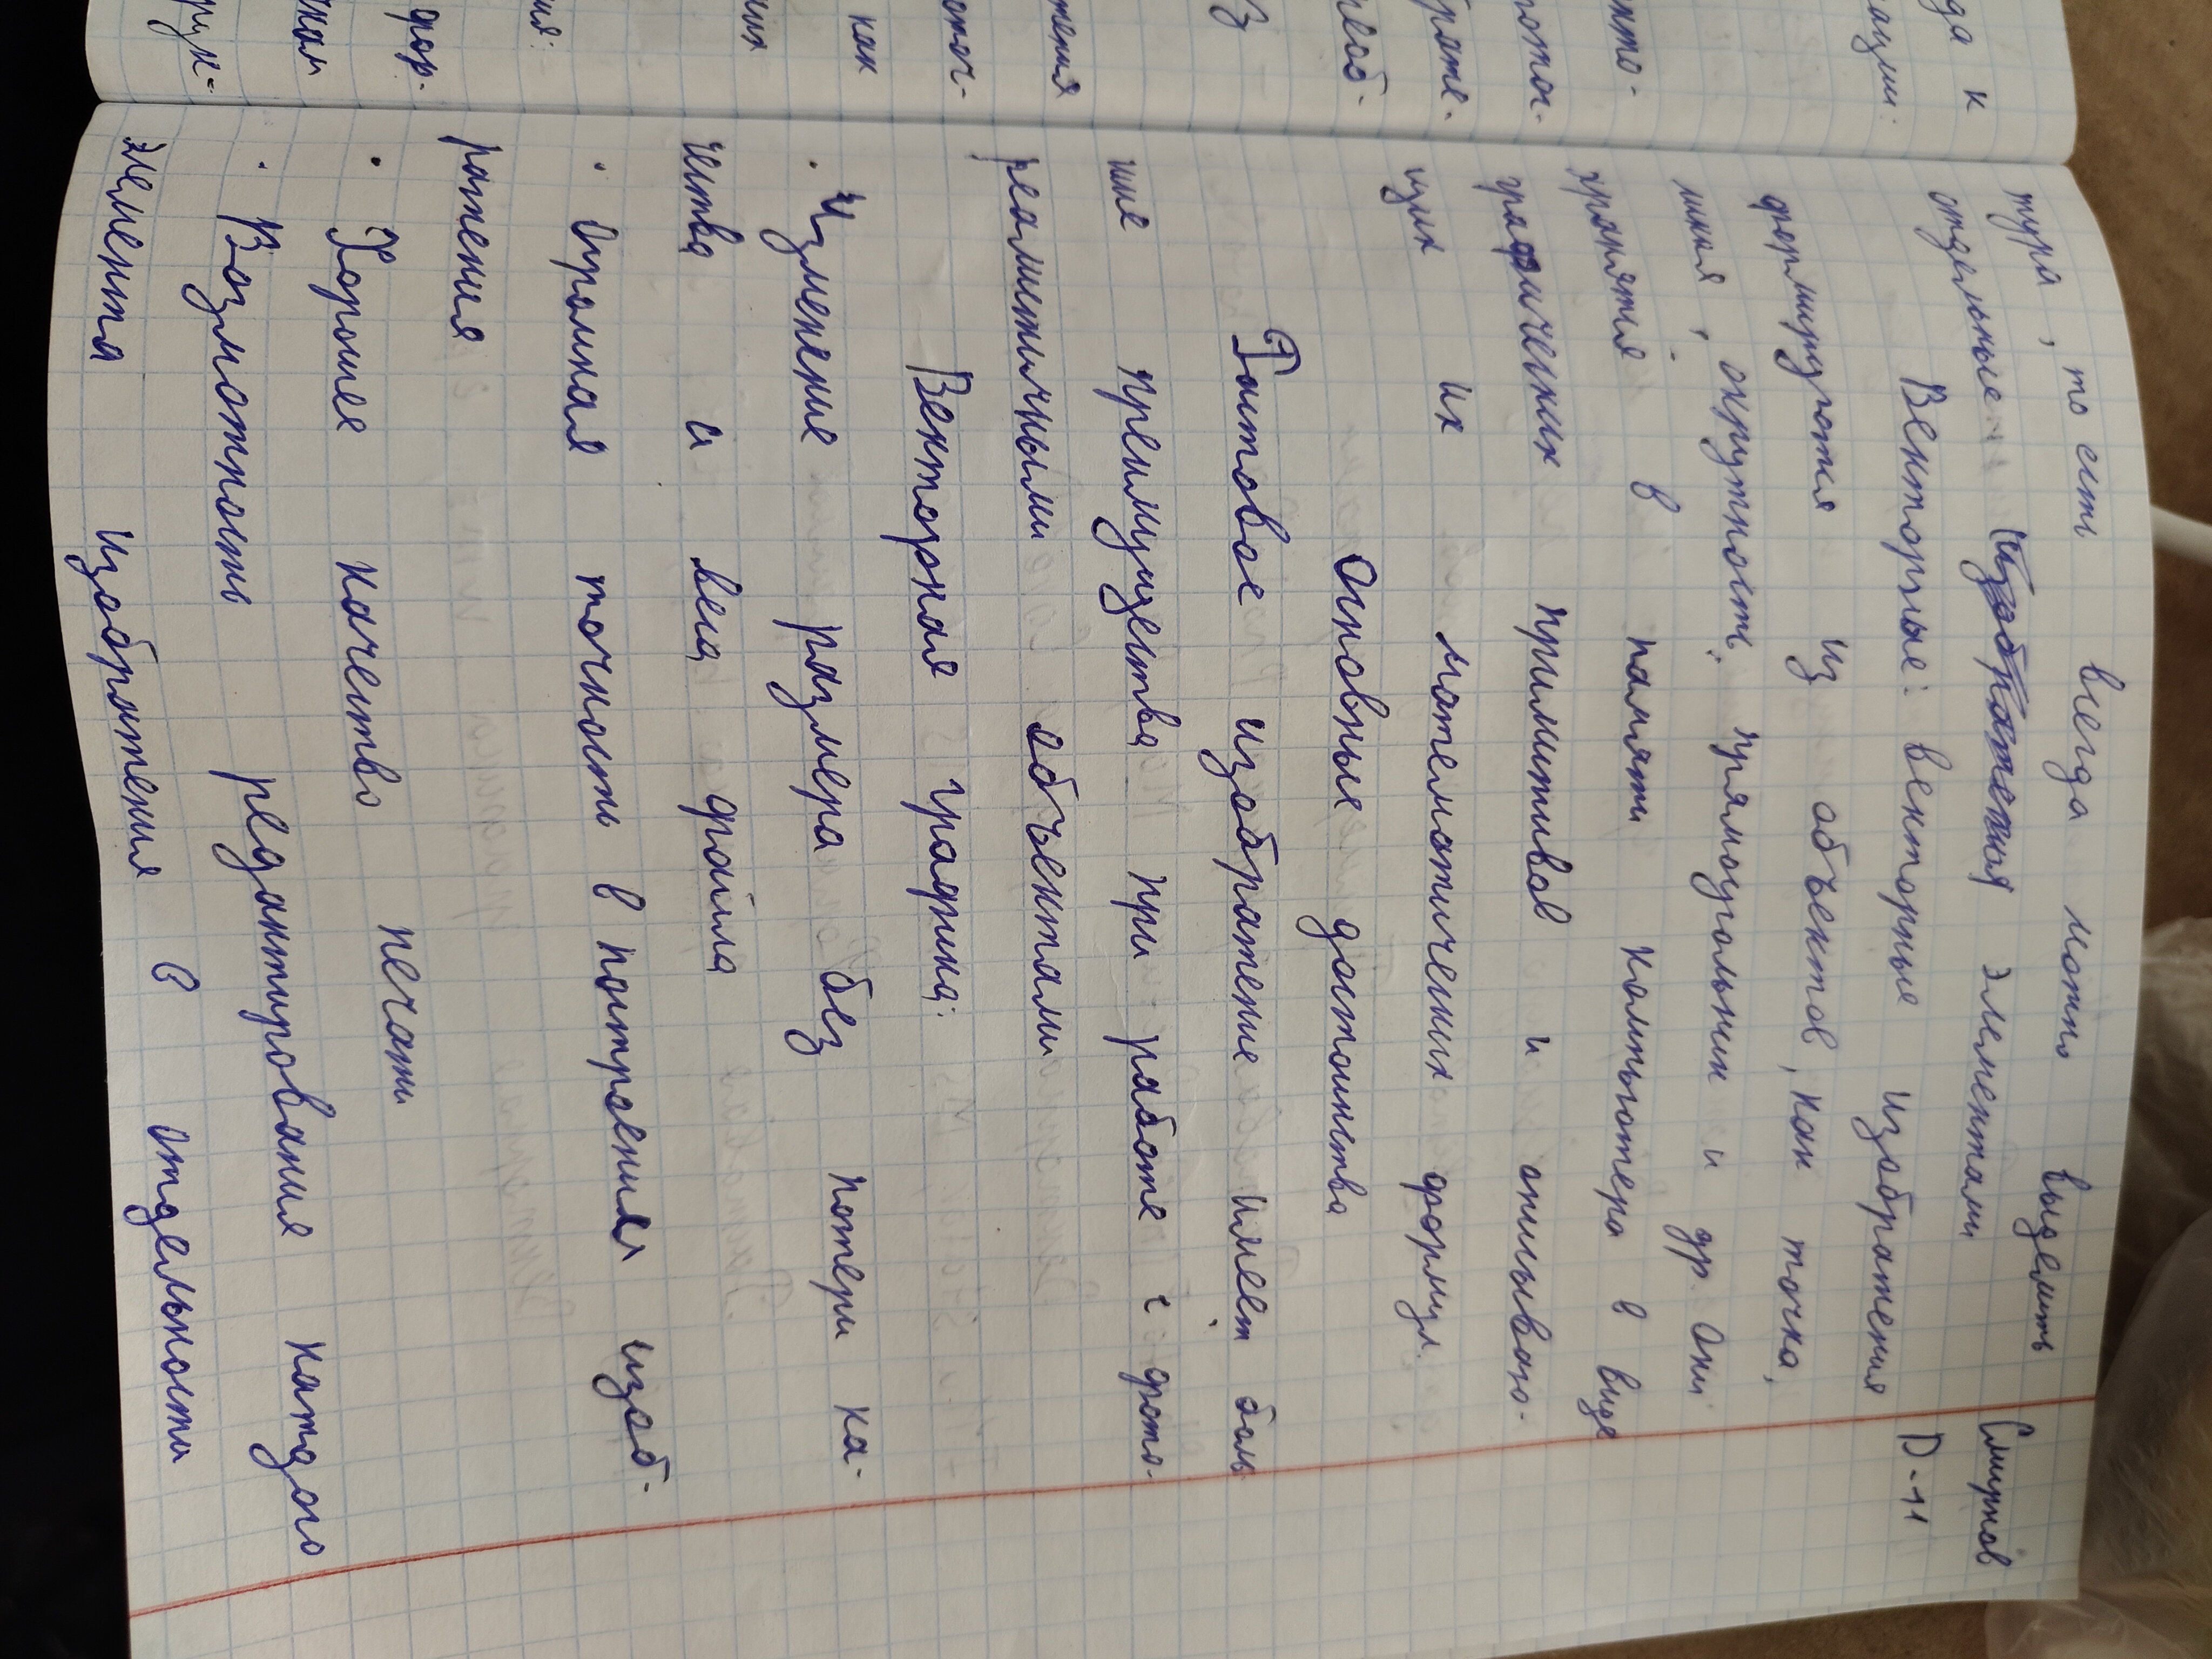 да к
ации:
нто-
оточ-
рате-
реоб-
З
тения
оточ-
как
ния
ия:
фор-
нкам
рук-
тура, то есть всегда можно выделить
отдельные элементами
Векторные: векторные изображения
формируются из объектов, как точка,
линия, окружность, прямоугольник и др. Они
хранятся в памяти компьютера в виде
графических примитивов и описываю-
щих их математических формул.
Основные достоинства
Растовое изображение имеет боль
шие преимущества при работе с фото-
реалистичными объектами
Векторная графика:
· Изменение размера без потери ка-
чества и веса файла
· Огромная точность в построения изоб-
ражения
· Хорошее качество печати
· Возможность редактирования каждого
элемента изображения в отдельности
Смирнов
D-11